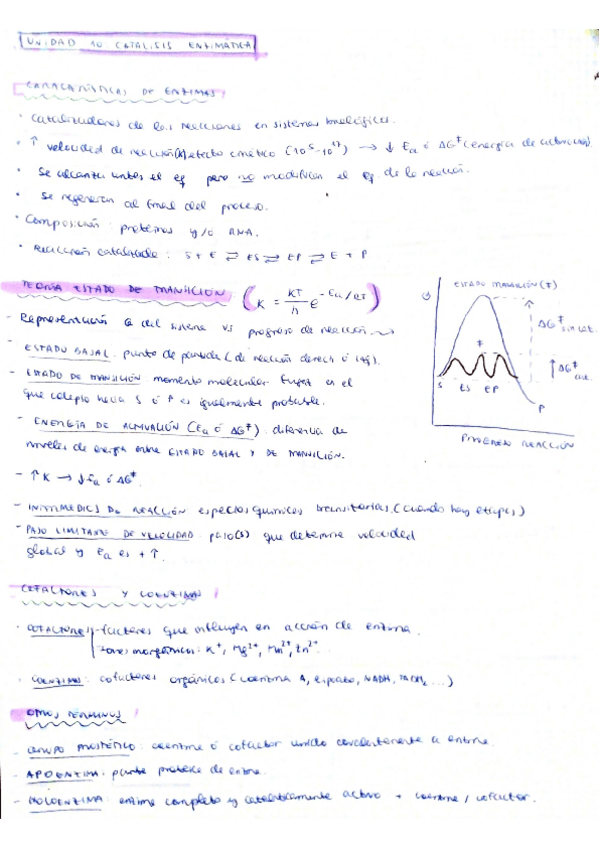 UNIDAD 10 CATALISIS ENZIMÁTICA
CARACTERÍSTICAS DE ENZIMAS:
· Catalizadores de las reacciones en sistemas biológicos.
· ↑ velocidad de reacción (k) efecto cinético (10⁵-10¹⁷) → ↓ Ea ó ΔG‡ (energía de activación).
· Se alcanza antes el eq pero no modifican el eq. de la reacción.
· Se regeneran al final del proceso.
· Composición: proteínas y/o RNA.
· Reacción catalizada: S + E ⇌ ES ⇌ EP ⇌ E + P
TEORÍA ESTADO DE TRANSICIÓN: (K = KT/h e^-Ea/RT)
- Representación G del sistema vs progreso de reacción →
- ESTADO BASAL: punto de partida (de reacción directa ó).
- ESTADO DE TRANSICIÓN: momento molecular fugaz en el
que colapso hacia S ó P es igualmente probable.
- ENERGÍA DE ACTIVACIÓN (Ea ó ΔG‡): diferencia de
niveles de energía entre ESTADO BASAL Y DE TRANSICIÓN.
- ↑ K → ↓ Ea ó ΔG‡.
- INTERMEDIOS DE REACCIÓN especies químicas transitorias. (cuando hay etapas)
- PASO LIMITANTE DE VELOCIDAD: paso(s) que determina velocidad
global y Ea es + ↑.
G
ESTADO TRANSICIÓN (‡)
ΔG‡ sin cat.
‡
ΔG‡ cat.
S ES EP
P
PROGRESO REACCIÓN
COFACTORES Y COENZIMAS:
· COFACTORES: factores que influyen en acción de enzima.
Iones inorgánicos: K⁺, Mg²⁺, Mn²⁺, Zn²⁺
· COENZIMAS: cofactores orgánicos (coenzima A, NADH, FADH₂ ...)
OTROS TÉRMINOS:
- GRUPO PROSTÉTICO: coenzima ó cofactor unido covalentemente a enzima.
- APOENZIMA: parte proteica de enzima.
- HOLOENZIMA: enzima completa y catalíticamente activa + coenzima / cofactor.